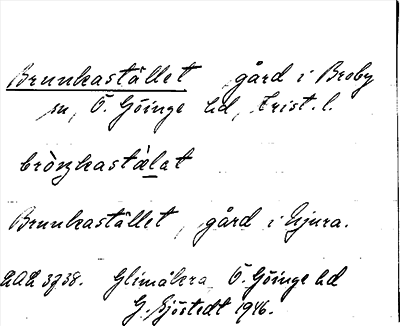 Brunkastället gård i Broby
sn, Ö. Göinge hd, Krist. l.
bròŋkastàlat
Brunkastället, gård i
Glimåkra Ö. Göinge hd
G. Sjöstedt 1946.